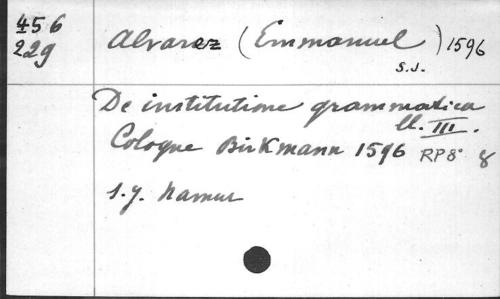 456
229
Alvarez (Emmanuel) 1596
S.J.
De institutione grammatica
ll. III.
Cologne Birkmann 1596 RP8° 8
s.j. Namur